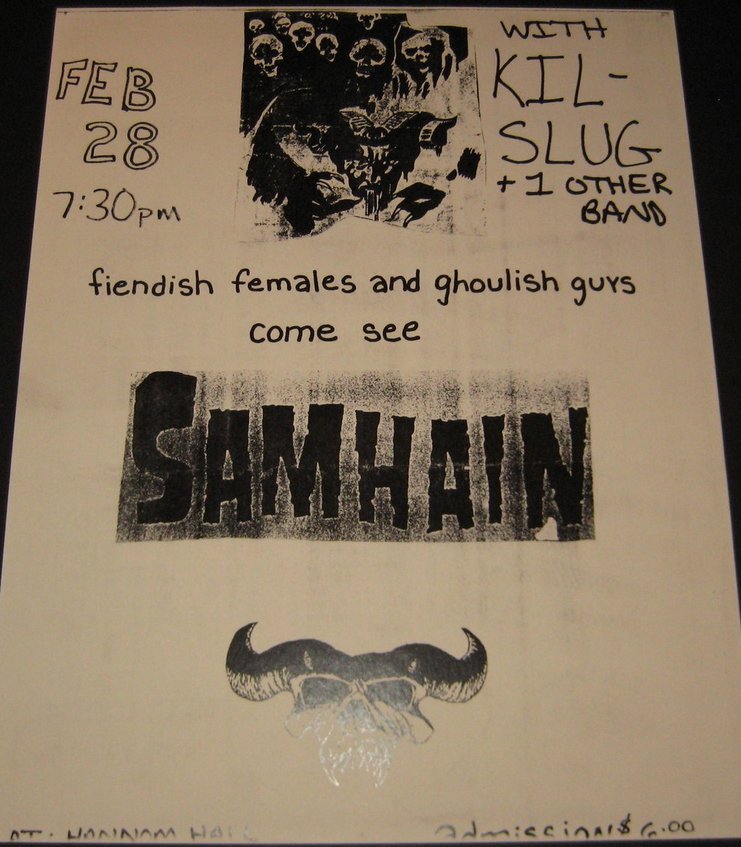 FEB
28
7:30pm
WITH
KIL-
SLUG
+ 1 OTHER
BAND
fiendish females and ghoulish guys
come see
SAMHAIN
AT
$6.00